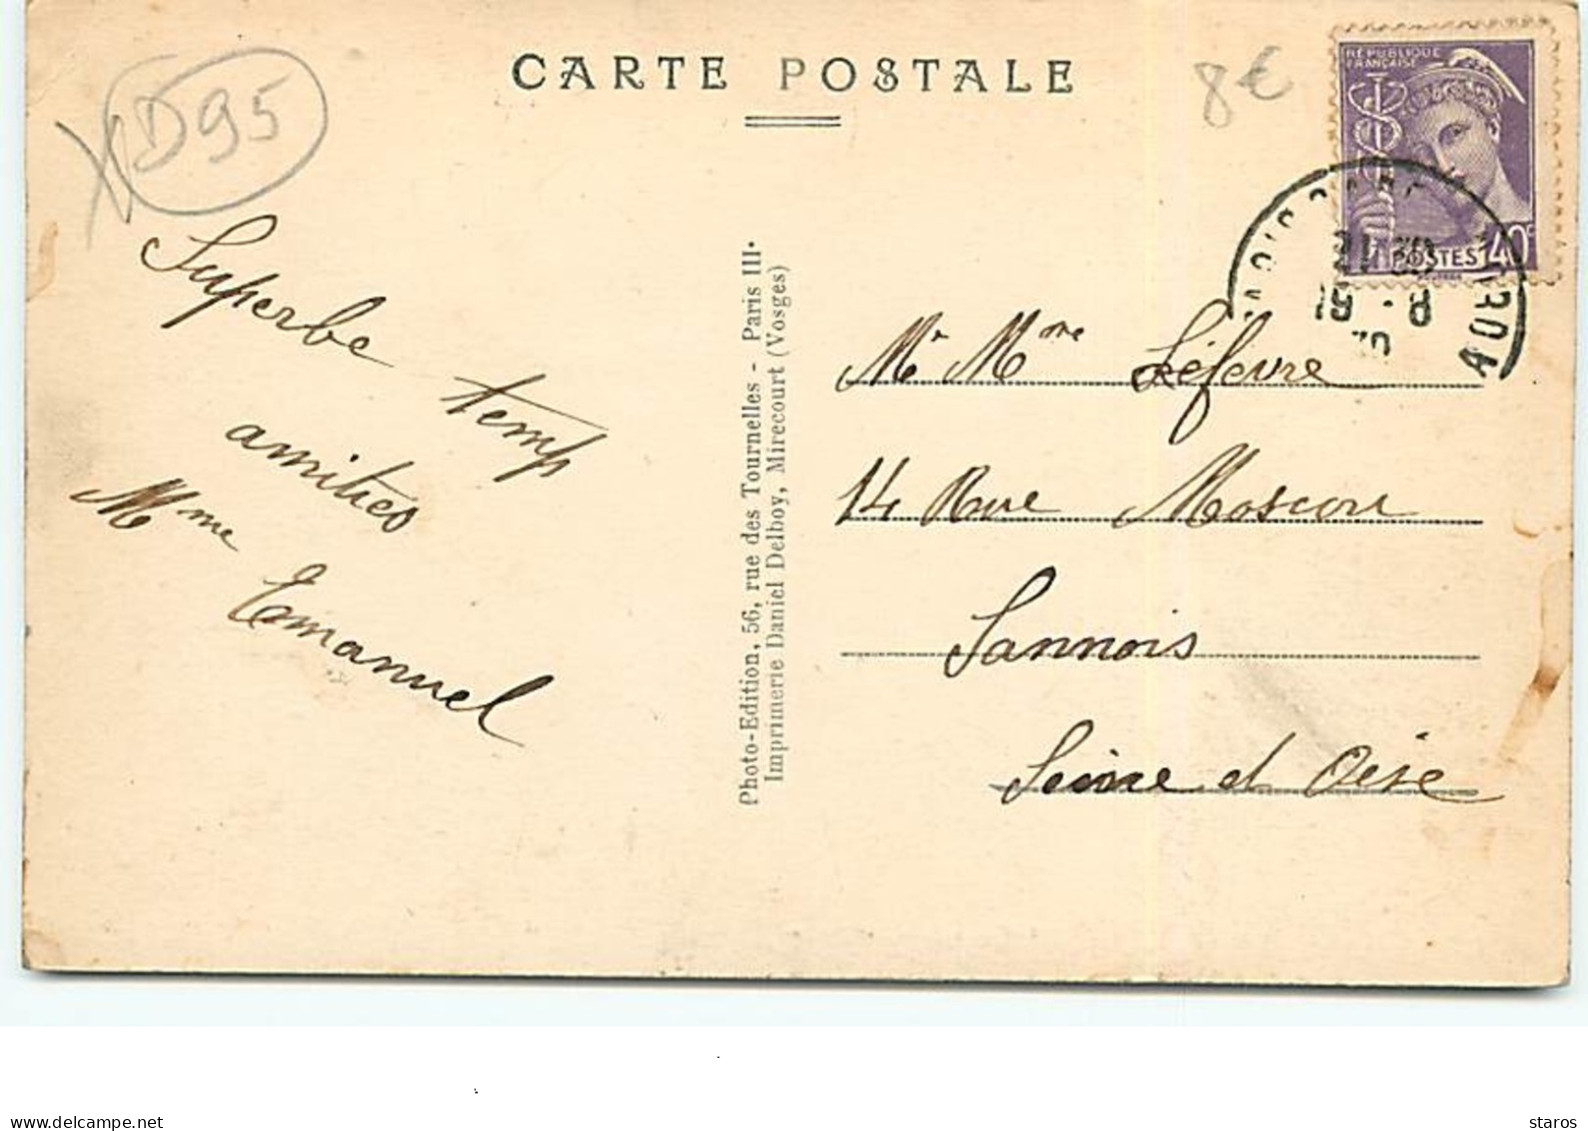 CARTE POSTALE
D95
8€
RÉPUBLIQUE
FRANÇAISE
POSTES 40c
21 30
19 - 8
Superbe temp
amities
Mme Emanuel
Photo-Edition, 56, rue des Tournelles - Paris III·
Imprimerie Daniel Delboy, Mirecourt (Vosges)
Mr Mme Léfevre
14 Rue Moscou
Sannois
Seine et Oise
delcampe.net
staros